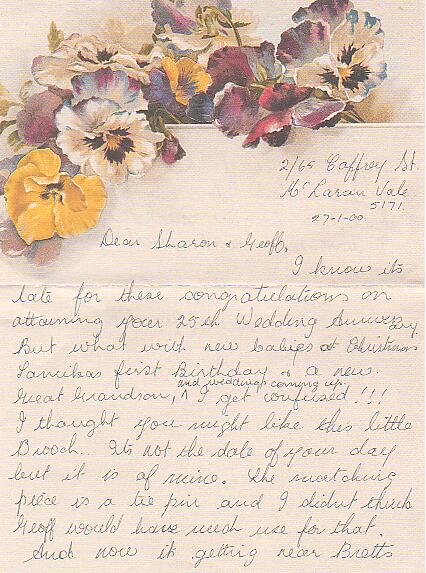 2/65 Caffrey St.
Mc Laran Vale
5171.
27-1-00.
Dear Sharon & Geoff,
I know its
late for these congratulations on
attaining your 25th Wedding Anniversary.
But what with new babies at Christmas
Lamikas first Birthday & a new
Great Grandson, and weddings coming up. I get confused!!!
I thought you might like this little
Brooch.. Its not the date of your day
but it is of mine. The matching
piece is a tie pin and I didn't think
Geoff would have much use for that.
And now its getting near Bretts